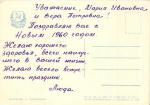 Уважаемые, Мария Ивановна
и Вера Петровна!
Поздравляю вас с
Новым 1960 годом.
Желаю хорошего
здоровья, всего наилуч-
шего в вашей жизни.
Желаю весело встре-
тить праздник.
Люда.